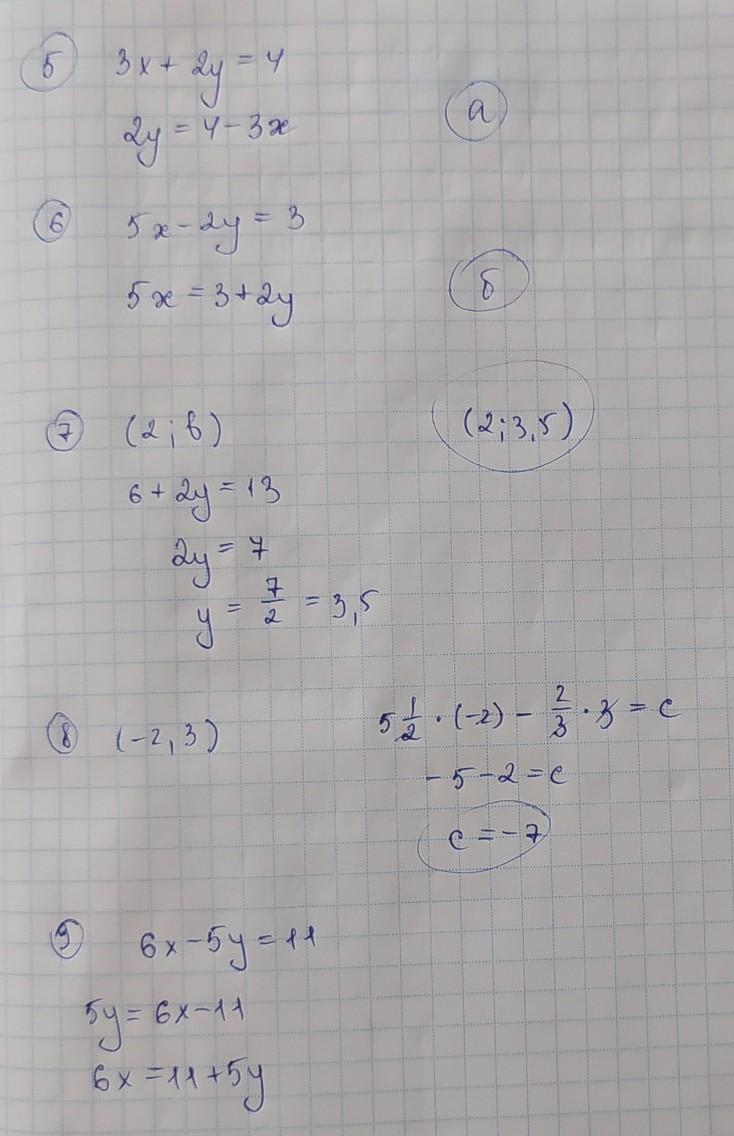 5 3x + 2y = 4
2y = 4 - 3x
а
6 5x - 2y = 3
5x = 3 + 2y
б
7 (2; b)
(2; 3,5)
6 + 2y = 13
2y = 7
y = 7/2 = 3,5
8 (-2, 3)
5 1/2 · (-2) - 2/3 · 3 = c
- 5 - 2 = c
c = -7
9 6x - 5y = 11
5y = 6x - 11
6x = 11 + 5y